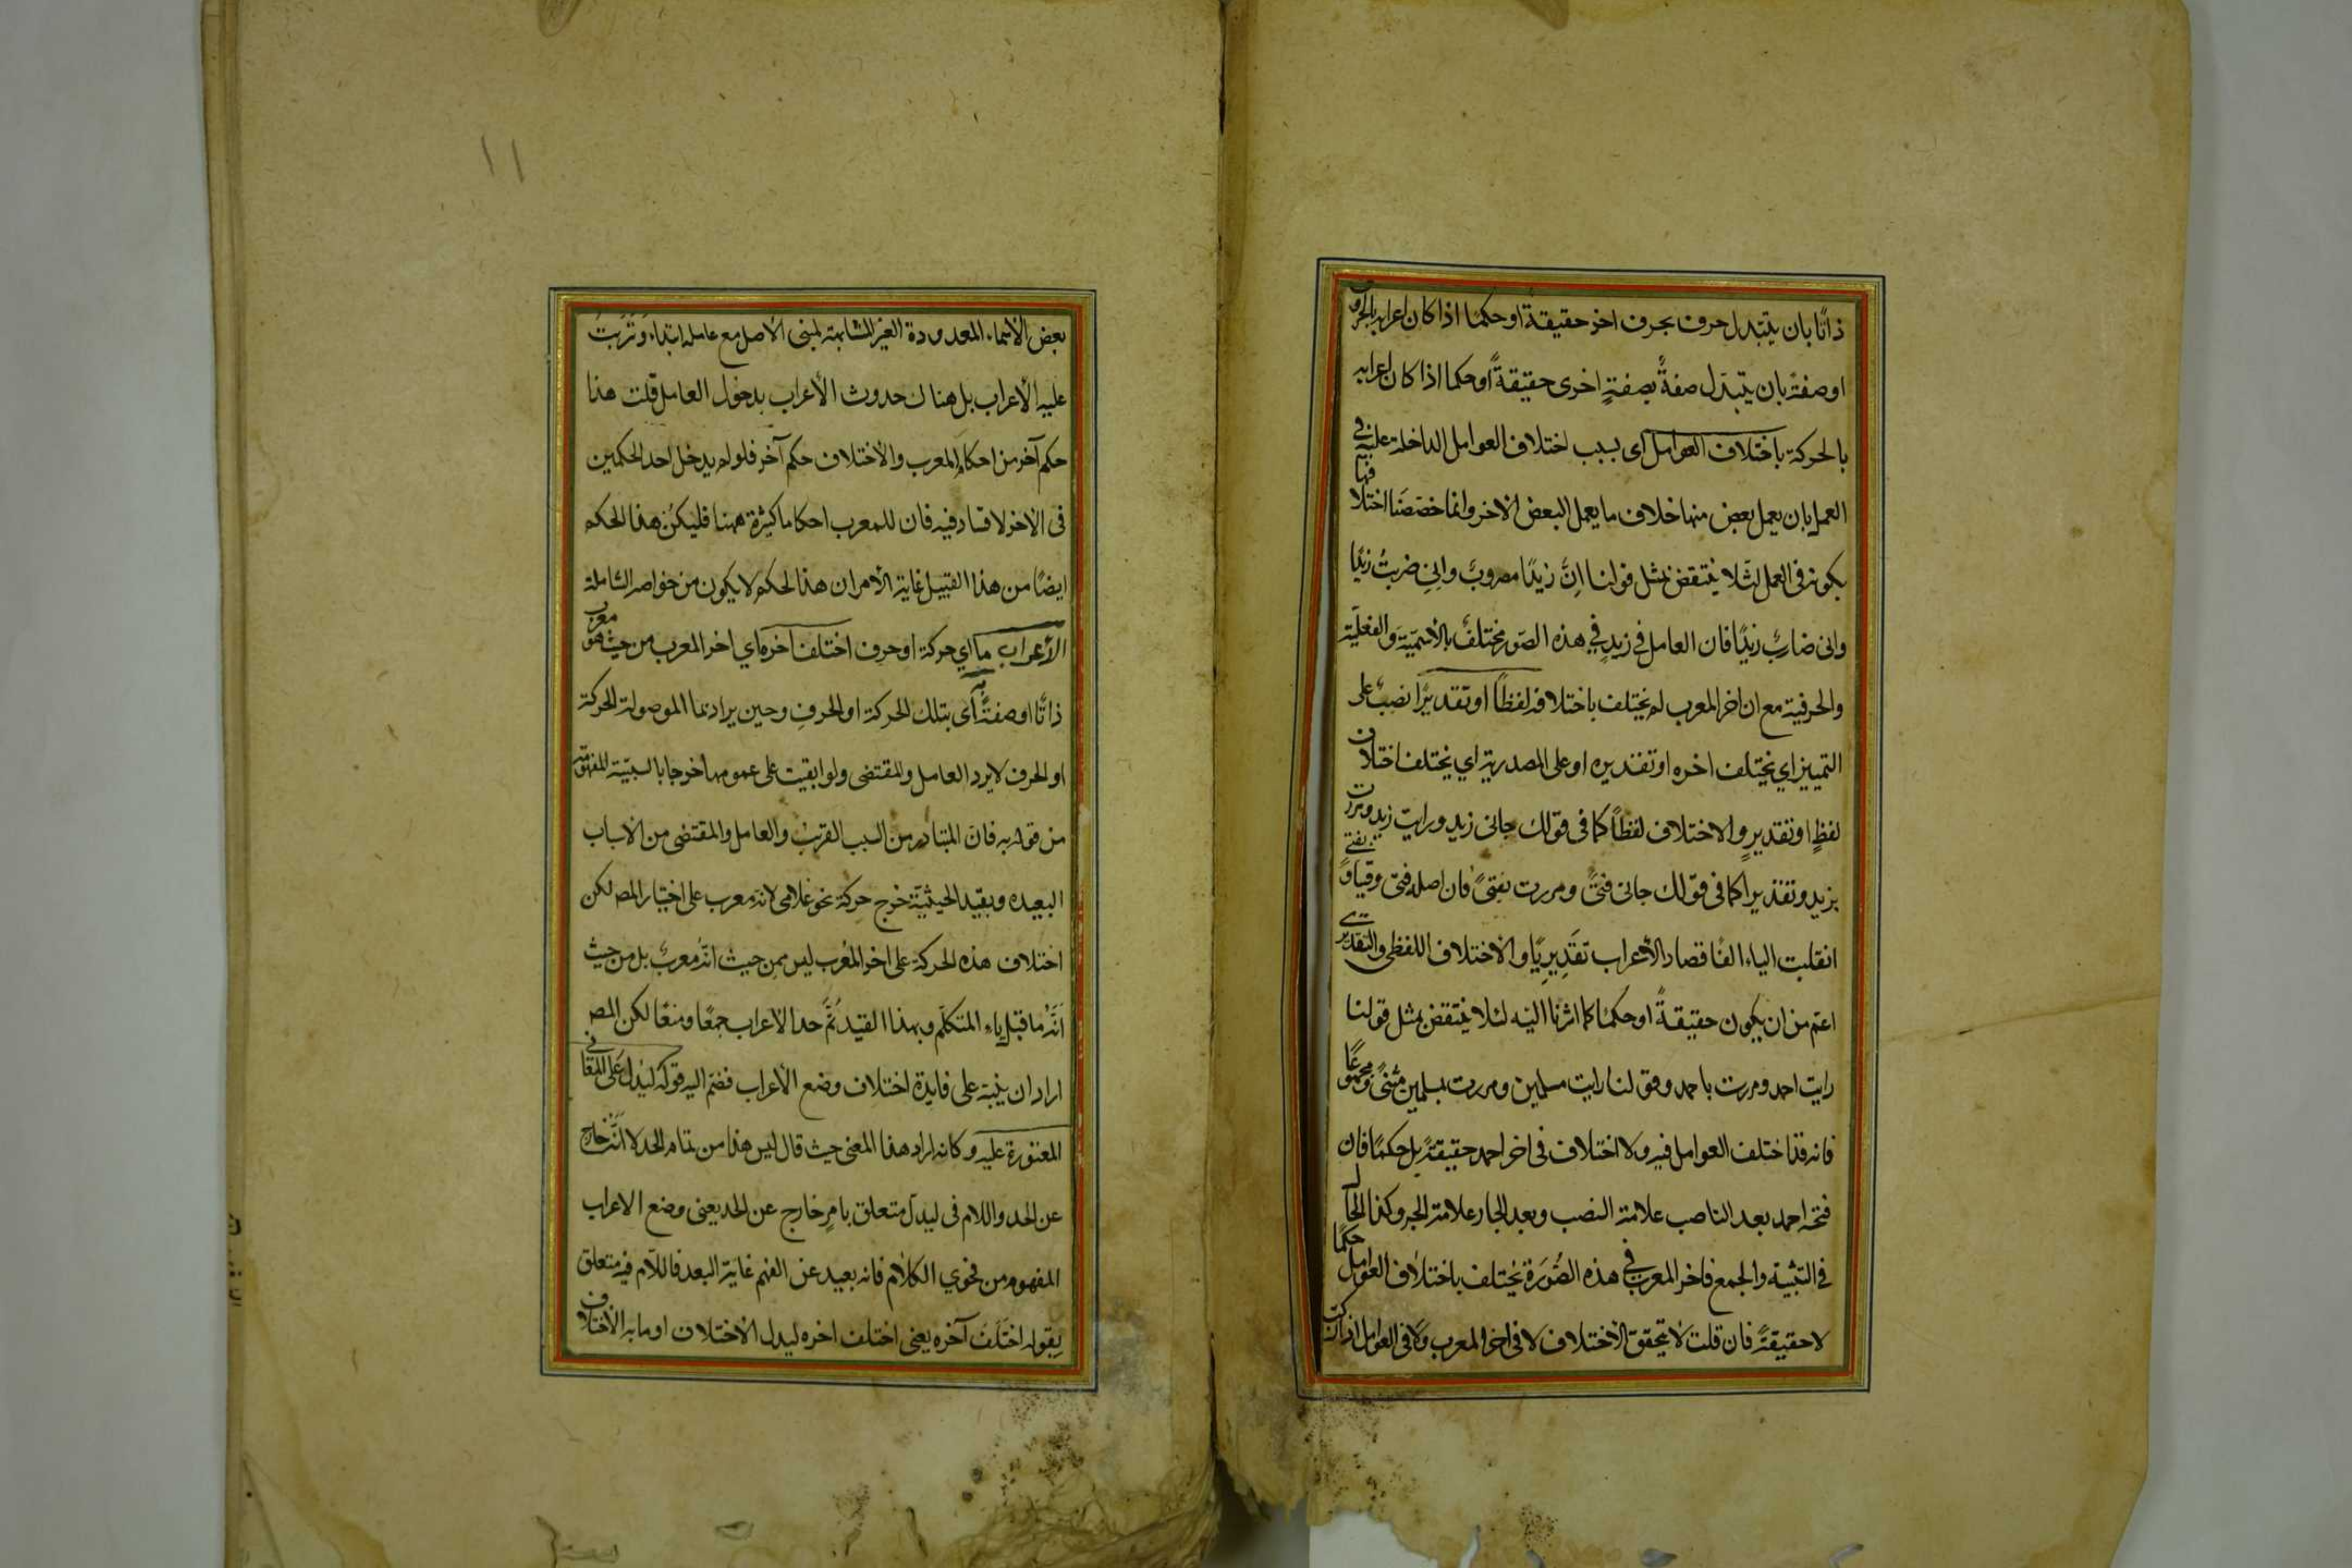 ذاتًا بان يتبدل حرف بحرف اخر حقيقةً او حكمًا اذا كان اعرابه بالحروف
او صفةً بان يتبدّل صفةٌ بصفةٍ اخرى حقيقةً او حكما اذا كان اعرابه
بالحركة باختلاف العوامل اى بسبب اختلاف العوامل الداخلة عليه في
العمل بان يعمل بعض منها خلاف ما يعمل البعض الاخر وانما خصصنا اختلافها
بكونه فى العمل لئلا ينتقض بمثل قولنا انّ زيدًا مضروبٌ وانى ضربتُ زيدًا
وانى ضاربٌ زيدًا فان العامل في زيدٍ في هذه الصّور مختلفٌ بالاسميّة والفعليّة
والحرفية مع ان اخر المعرب لم يختلف باختلافه لفظًا او تقديرًا نصبٌ على
التمييز اي يختلف اخره او تقديره او على المصدرية اي يختلف اختلاف
لفظٍ او تقديرٍ والاختلاف لفظاً كما فى قولك جانى زيد ورايت زيد ومررت
بزيد وتقديرا كما فى قولك جانى فتىً ومررت بفتىً فان اصله فتى
انقلبت الياء الفًا فصار الأعراب تقديريًا والاختلاف اللفظى والتقديرى
اعم من ان يكون حقيقةً او حكمًا كما اشرنا اليه لئلا ينتقض بمثل قولنا
رايت احمد ومررت باحمد وقولنا رايت مسلمين ومررت بمسلمين مثنىً ومجموعًا
فانه قد اختلف العوامل فيه ولا اختلاف فى اخر احمد حقيقةً بل حكمًا فان
فتحة احمد بعد الناصب علامة النصب وبعد الجار علامة الجر وكذا الحال
في التثنية والجمع فاخر المعرب فى هذه الصُّوَرة يختلف باختلاف العوامل حكمًا
لا حقيقةً فان قلت لا يتحقق الاختلاف لا فى اخر المعرب ولا فى العوامل اذا
١١
بعض الأسماء المعدودة الغير المشابهة لمبنى الأصل مع عامله ابتداء وترتب
عليه الأعراب بل هناك حدوث الأعراب بدخول العامل قلت هذا
حكم آخر من احكام المعرب والأختلاف حكم آخر فلو لم يدخل احد الحكمين
فى الأخر لا فساد فيه فان للمعرب احكاما كثيرة ههنا فليكن هذا الحكم
ايضًا من هذا القبيل غاية الأمر ان هذا الحكم لا يكون من خواصه الشاملة
الأعراب ما اي حركة او حرف اختلف اخره اي اخر المعرب من حيث هو معرب
ذاتًا او صفةً به اى بتلك الحركة او الحرف وحين يراد بما الموصولة الحركة
او الحرف لا يرد العامل والمقتضى ولو ابقيت على عمومها خرجا بالسببيّة المفهومة
من قوله به فان المتبادر من السبب القريب والعامل والمقتضى من الاسباب
البعيده وبقيد الحيثيّة خرج حركة نحو غلامى لانه معرب على اختيار المص لكن
اختلاف هذه الحركة على اخر المعرب ليس من حيث انّه معربٌ بل من حيث
انّه ما قبل ياء المتكلم وبهذا القيد تمّ حد الأعراب جمعًا ومنعًا لكن المص
اراد ان ينبّه على فايدة اختلاف وضع الأعراب فضم اليه قوله ليدل على المعانى
المعتورة عليه وكانه اراد هذا المعنى حيث قال ليس هذا من تمام الحد لا انّه خارج
عن الحد واللام فى ليدل متعلق بامرٍ خارج عن الحد يعنى وضع الاعراب
المفهوم من فحوي الكلام فانه بعيد عن الفهم غاية البعد فاللام فيه متعلق
بقوله اختلف آخره يعنى اختلف اخره ليدل الأختلاف او ما به الأختلاف